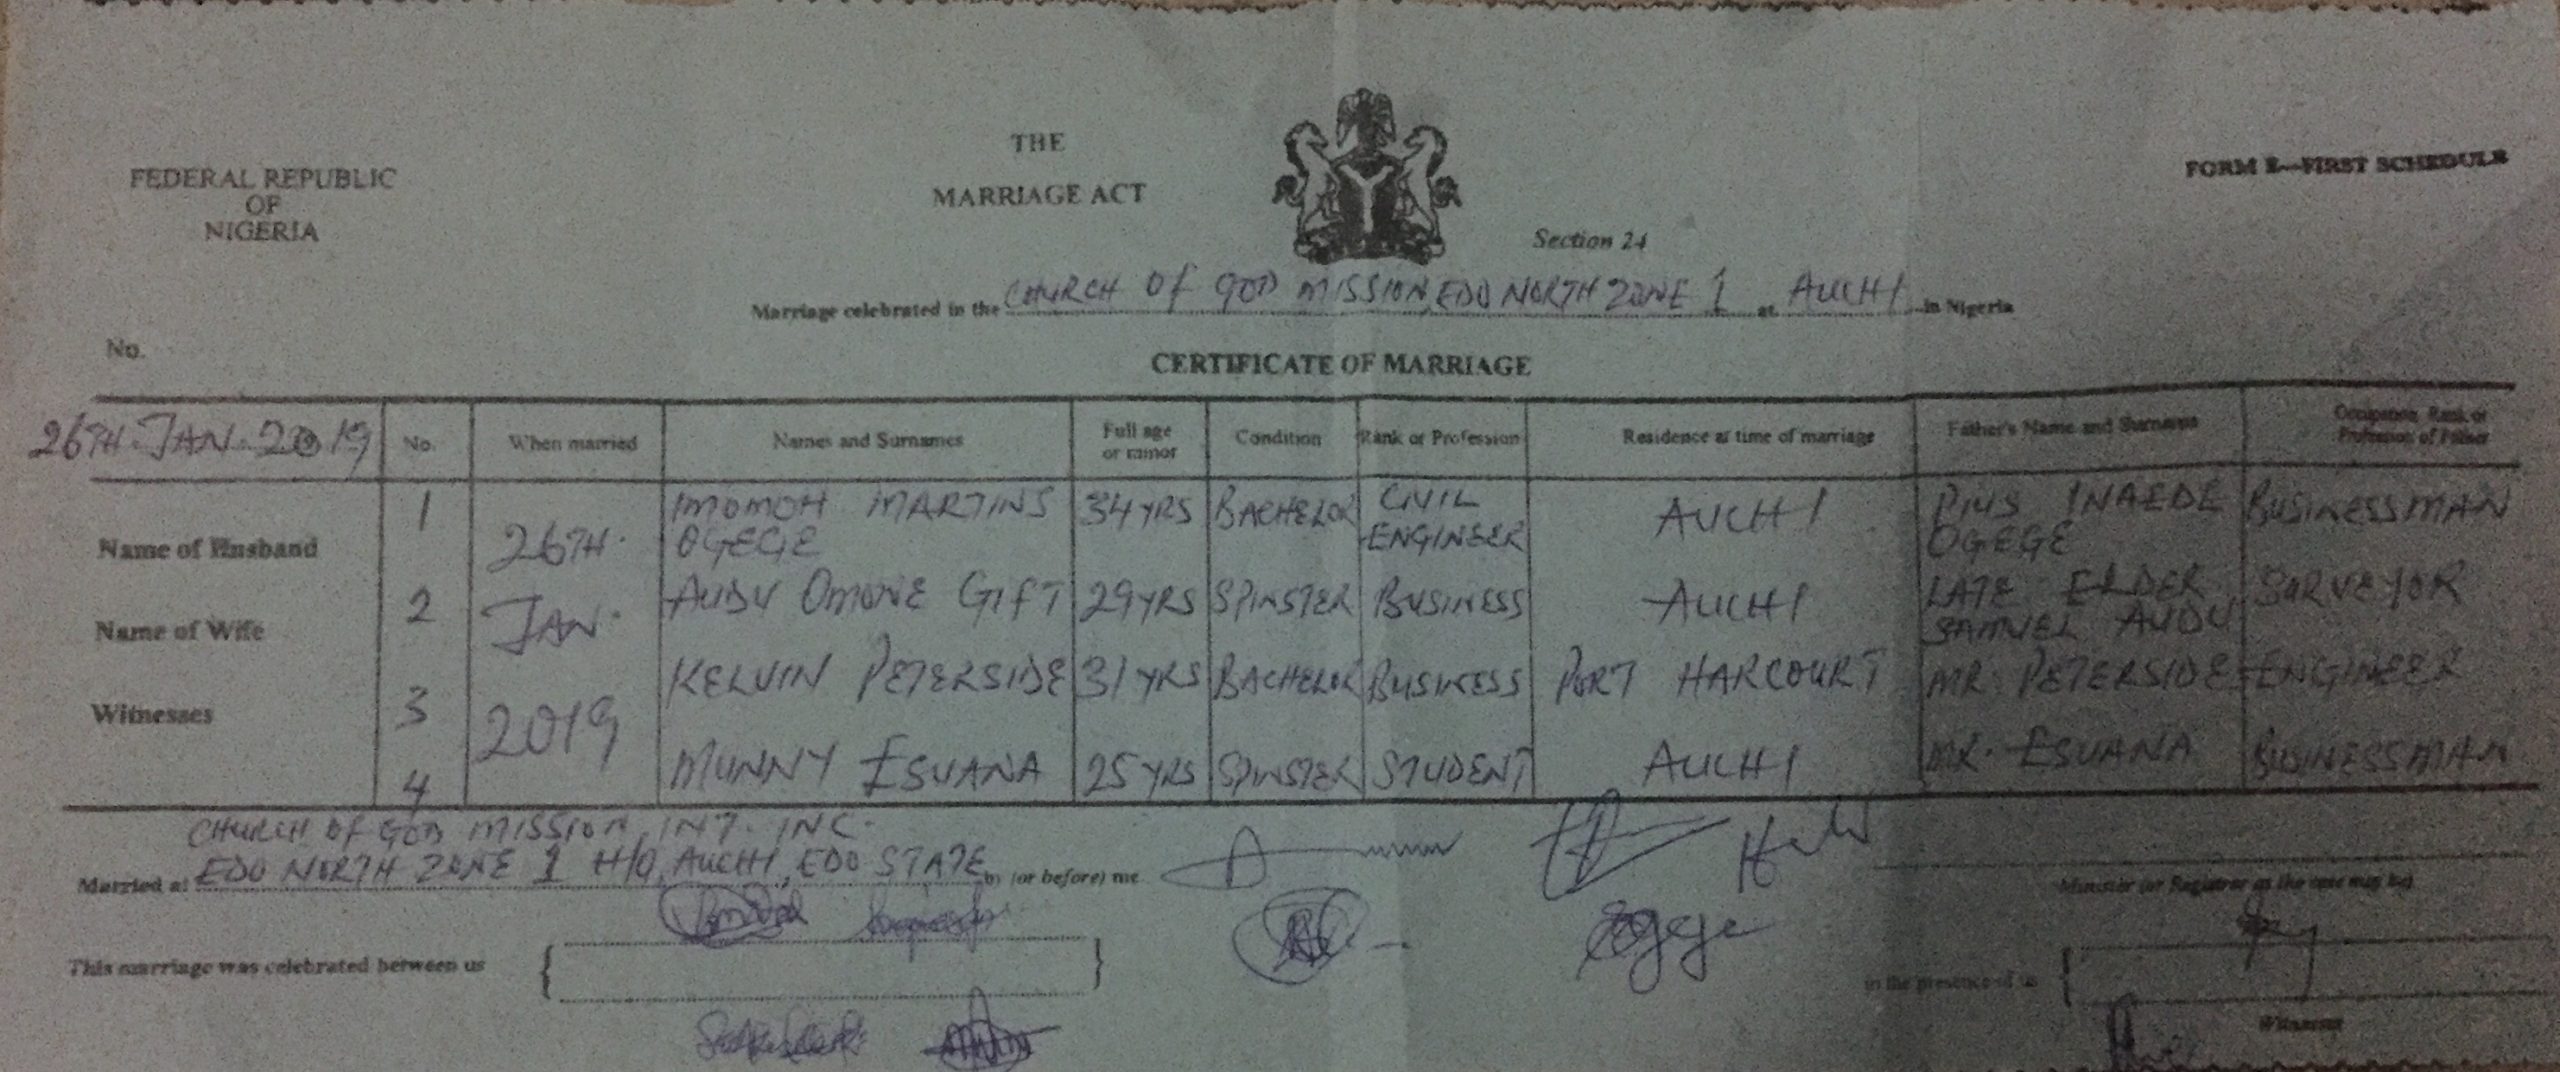 FEDERAL REPUBLIC
OF
NIGERIA
THE
MARRIAGE ACT
Section 24
FORM E—FIRST SCHEDULE
Marriage celebrated in the CHURCH OF GOD MISSION, EDO NORTH ZONE 1 at AUCHI in Nigeria
No.
CERTIFICATE OF MARRIAGE
26TH. JAN. 2019 No. When married Names and Surnames Full age or minor Condition Rank or Profession Residence at time of marriage Father's Name and Surname Occupation, Rank or Profession of Father
Name of Husband 1 26TH. IMOMOH MARTINS OGEGE 34YRS BACHELOR CIVIL ENGINEER AUCHI PIUS INAEDE OGEGE BUSINESSMAN
Name of Wife 2 JAN. AUDU OMONE GIFT 29YRS SPINSTER BUSINESS AUCHI LATE ELDER SAMUEL AUDU SURVEYOR
Witnesses 3 2019 KELVIN PETERSIDE 31YRS BACHELOR BUSINESS PORT HARCOURT MR. PETERSIDE ENGINEER
4 MUNNY ESUANA 25YRS SPINSTER STUDENT AUCHI MR. ESUANA BUSINESSMAN
CHURCH OF GOD MISSION INT. INC.
Married at EDO NORTH ZONE 1 H/Q, AUCHI, EDO STATE by (or before) me
Minister (or Registrar as the case may be)
This marriage was celebrated between us
Ogege
in the presence of us
Witnesses